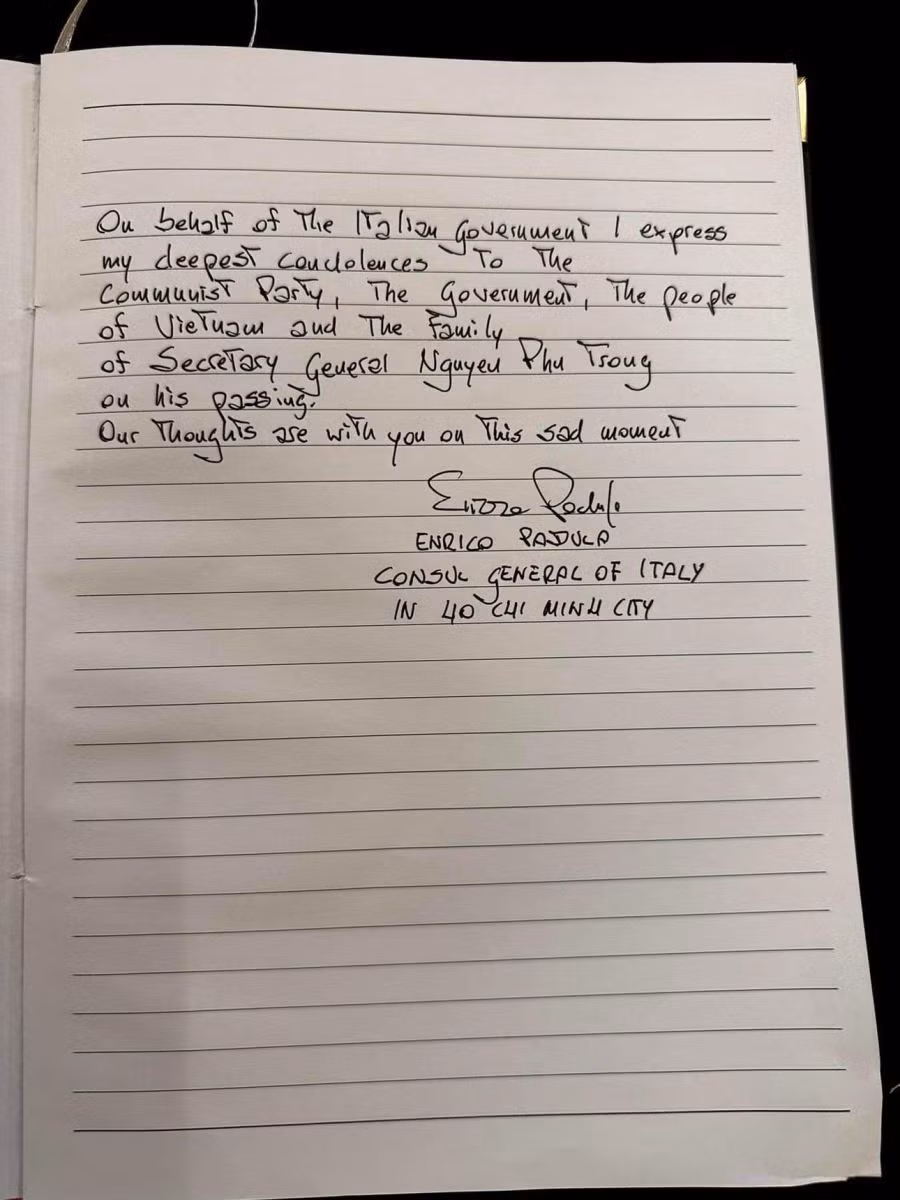 On behalf of The Italian Government I express
my deepest condolences To The
Communist Party, The Government, The people
of Vietnam and The Family
of Secretary General Nguyen Phu Trong
on his passing.
Our Thoughts are with you on This sad moment
Enrico Padula
ENRICO PADULA
CONSUL GENERAL OF ITALY
IN HO CHI MINH CITY